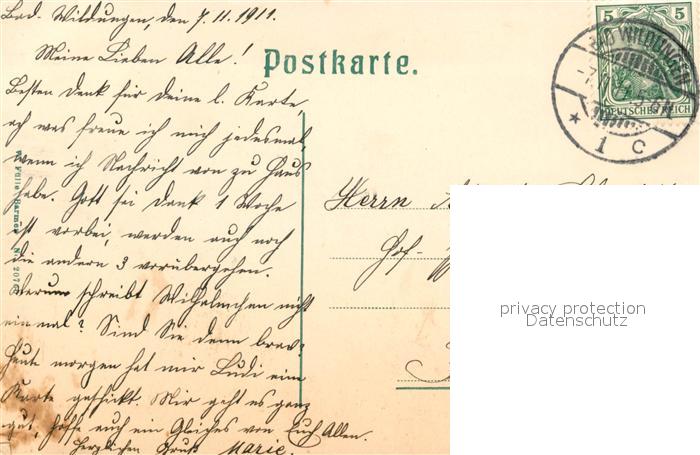 Bad. Wildungen, den 7.11.1911.
Meine Lieben Alle!
Postkarte.
Besten Dank für deine l. Karte,
ach was freue ich mich jedesmal,
wenn ich Nachricht von zu Haus
habe. Gott sei dank 1 Woche
ist vorbei, werden auch noch
die andern 3 vorübergehen.
Warum schreibt Wilhelmchen nicht
einmal? Sind Sie denn brav?
Heute morgen hat mir Ludi eine
Karte geschickt. Mir geht es ganz
gut, hoffe auch ein Gleiches von Euch Allen.
Herzlichen Gruß Marie.
5 5
DEUTSCHES REICH
BAD WILDUNGEN
* 1 C
Herrn
Hof-
privacy protection
Datenschutz